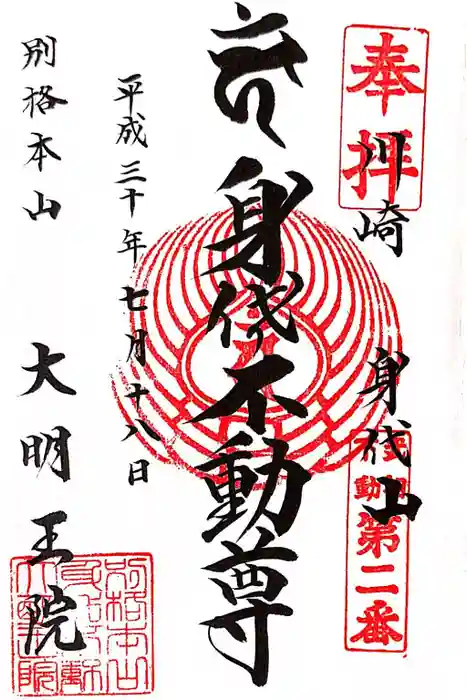 奉拝
川崎 身代山
第二番
身代不動尊
平成三十年七月十八日
別格本山 大明王院